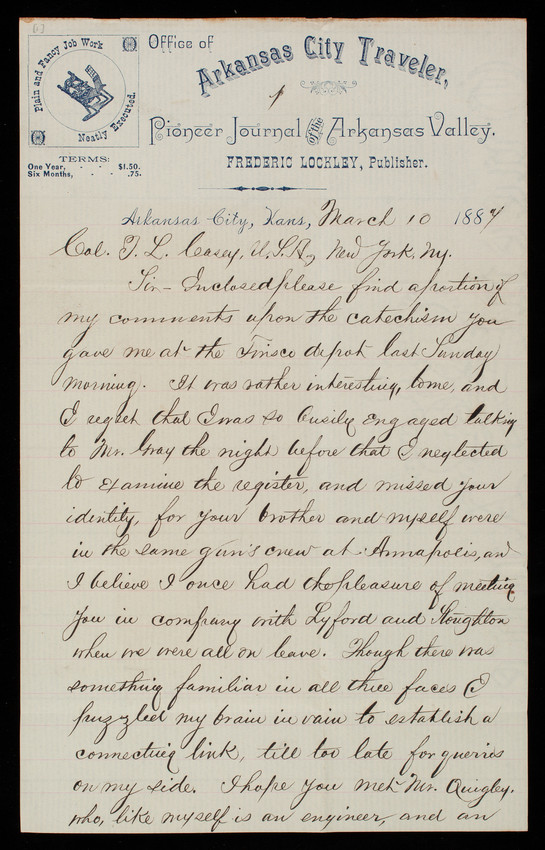 [1]
Plain and Fancy Job Work
Neatly Executed.
TERMS:
One Year, - - - $1.50.
Six Months, - - .75.
Office of
Arkansas City Traveler,
Pioneer Journal of the Arkansas Valley.
FREDERIC LOCKLEY, Publisher.
Arkansas City, Kans, March 10 1884
Col. T. L. Casey, U.S.A., New York, Ny.
Sir - Inclosed please find a portion of
my comments upon the catechism you
gave me at the Frisco depot last Sunday
morning. It was rather interesting, to me, and
I regret that I was so busily engaged talking
to Mr. Gray the night before that I neglected
to examine the register, and missed your
identity, for your brother and myself were
in the same gun's crew at Annapolis, and
I believe I once had the pleasure of meeting
you in company with Lyford and Stoughton
when we were all on leave. Though there was
something familiar in all three faces I
puzzled my brain in vain to establish a
connecting link, till too late for queries
on my side. I hope you met Mr. Quigley.
who, like myself is an engineer, and an